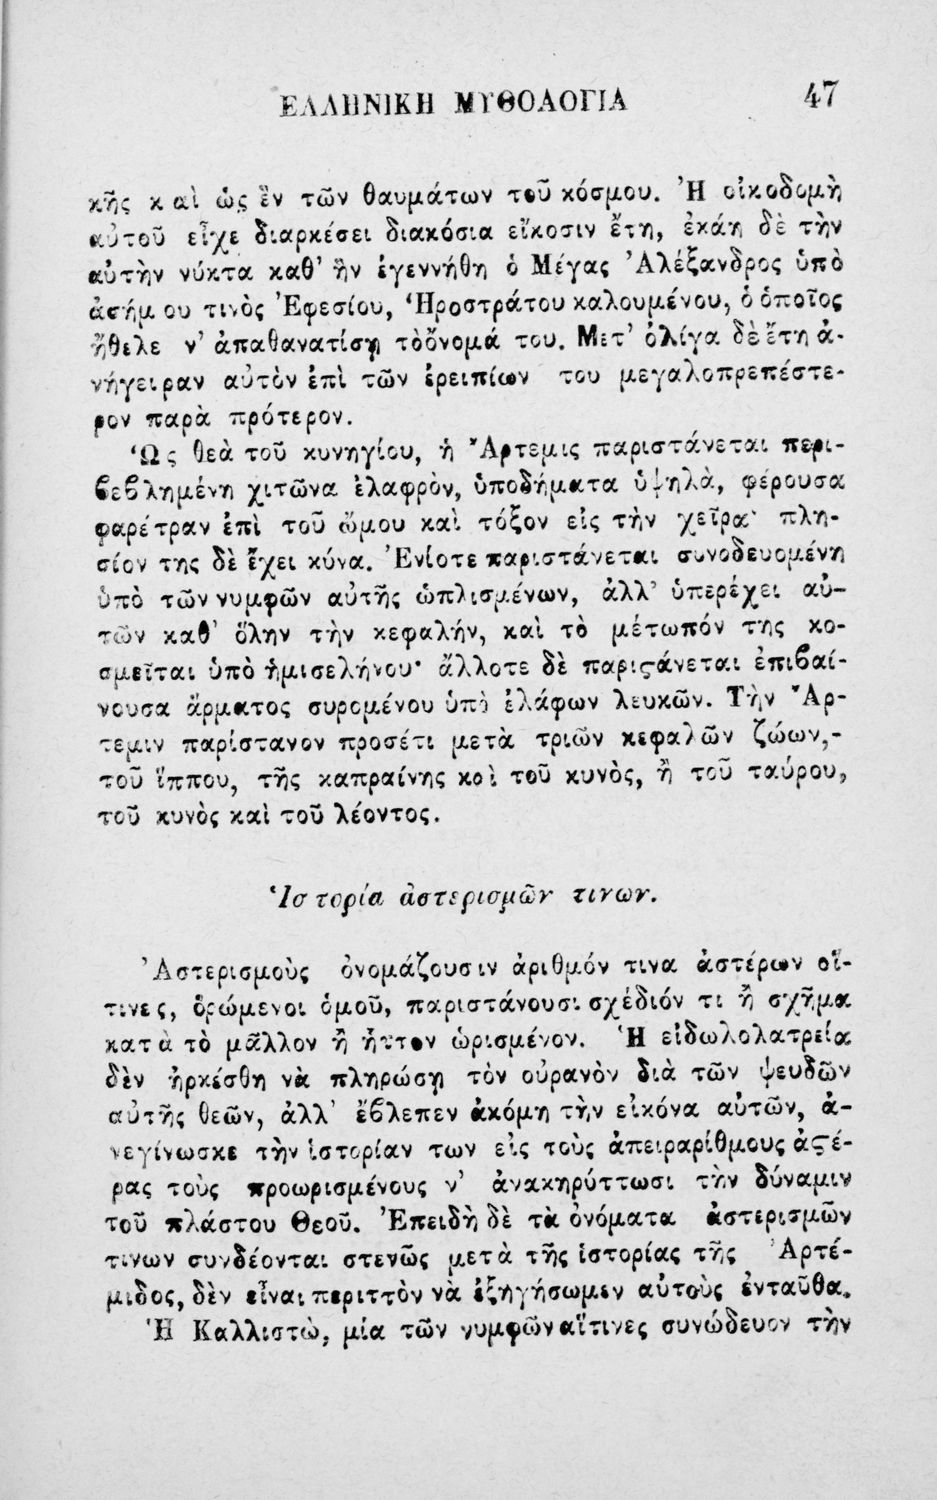 ΕΛΛΗΝΙΚΗ ΜΥΘΟΛΟΓΙΑ 47
κῆς καὶ ὡς ἓν τῶν θαυμάτων τοῦ κόσμου. Ἡ οἰκοδομὴ
αὐτοῦ εἶχε διαρκέσει διακόσια εἴκοσιν ἔτη, ἐκάη δὲ τὴν
αὐτὴν νύκτα καθ' ἣν ἐγεννήθη ὁ Μέγας Ἀλέξανδρος ὑπὸ
ἀσήμου τινὸς Ἐφεσίου, Ἡροστράτου καλουμένου, ὁ ὁποῖος
ἤθελε ν' ἀπαθανατίσῃ τὸ ὄνομά του. Μετ' ὀλίγα δὲ ἔτη ἀ-
νήγειραν αὐτὸν ἐπὶ τῶν ἐρειπίων του μεγαλοπρεπέστε-
ρον παρὰ πρότερον.
Ὡς θεὰ τοῦ κυνηγίου, ἡ Ἄρτεμις παριστάνεται περι-
βεβλημένη χιτῶνα ἐλαφρὸν, ὑποδήματα ὑψηλὰ, φέρουσα
φαρέτραν ἐπὶ τοῦ ὤμου καὶ τόξον εἰς τὴν χεῖρα· πλη-
σίον της δὲ ἔχει κύνα. Ἐνίοτε παριστάνεται συνοδευομένη
ὑπὸ τῶν νυμφῶν αὐτῆς ὡπλισμένων, ἀλλ' ὑπερέχει αὐ-
τῶν καθ' ὅλην τὴν κεφαλήν, καὶ τὸ μέτωπόν της κο-
σμεῖται ὑπὸ ἡμισελήνου· ἄλλοτε δὲ παριϛάνεται ἐπιβαί-
νουσα ἅρματος συρομένου ὑπὸ ἐλάφων λευκῶν. Τὴν Ἄρ-
τεμιν παρίστανον προσέτι μετὰ τριῶν κεφαλῶν ζώων,-
τοῦ ἵππου, τῆς καπραίνης καὶ τοῦ κυνὸς, ἢ τοῦ ταύρου,
τοῦ κυνὸς καὶ τοῦ λέοντος.
Ἱστορία ἀστερισμῶν τινων.
Ἀστερισμοὺς ὀνομάζουσιν ἀριθμόν τινα ἀστέρων οἵ-
τινες, ὁρώμενοι ὁμοῦ, παριστάνουσι σχέδιόν τι ἢ σχῆμα
κατὰ τὸ μᾶλλον ἢ ἧττον ὡρισμένον. Ἡ εἰδωλολατρεία
δὲν ἠρκέσθη νὰ πληρώσῃ τὸν οὐρανὸν διὰ τῶν ψευδῶν
αὐτῆς θεῶν, ἀλλ' ἔβλεπεν ἀκόμη τὴν εἰκόνα αὐτῶν, ἀ-
νεγίνωσκε τὴν ἱστορίαν των εἰς τοὺς ἀπειραρίθμους ἀϛέ-
ρας τοὺς προωρισμένους ν' ἀνακηρύττωσι τὴν δύναμιν
τοῦ πλάστου Θεοῦ. Ἐπειδὴ δὲ τὰ ὀνόματα ἀστερισμῶν
τινων συνδέονται στενῶς μετὰ τῆς ἱστορίας τῆς Ἀρτέ-
μιδος, δὲν εἶναι περιττὸν νὰ ἐξηγήσωμεν αὐτοὺς ἐνταῦθα.
Ἡ Καλλιστὼ, μία τῶν νυμφῶν αἵτινες συνώδευον τὴν